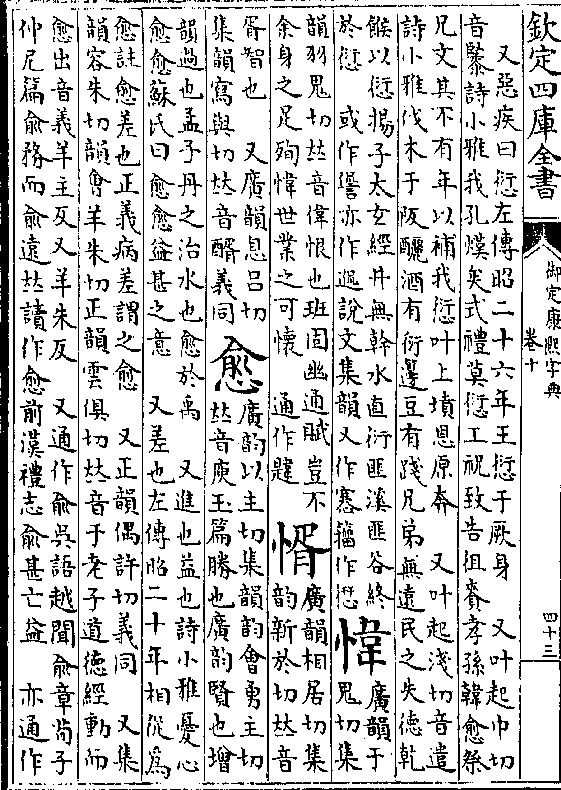 欽定四庫全書
御定康熙字典
卷十
四十三
又惡疾曰愆左傳昭二十六年王愆于厥身　又叶起巾切
音䵑詩小雅我孔熯矣式禮莫愆工祝致告徂賚孝孫韓愈祭
兄文其不有年以補我愆叶上墳恩原奔　又叶起淺切音遣
詩小雅伐木于阪釃酒有衍籩豆有踐兄弟無遠民之失德乾
餱以愆揚子太玄經井無幹水直衍匪溪匪谷終
於愆　或作亦作說文集韻又作作愆
愇
廣韻于
鬼切集
韻羽鬼切𠀤音偉恨也班固幽通賦豈不
余身之足殉愇世業之可懷　通作韙
㥠
廣韻相居切集
韻新於切𠀤音
胥智也　又廣韻息呂切
集韻寫與切𠀤音醑義同
愈
廣韻以主切集韻韻會勇主切
𠀤音庾玉篇勝也廣韻賢也增
韻過也孟子丹之治水也愈於禹　又進也益也詩小雅憂心
愈愈蘇氏曰愈愈益甚之意　又差也左傳昭二十年相從爲
愈註愈差也正義病差謂之愈　又正韻偶許切義同　又集
韻容朱切韻會羊朱切正韻雲俱切𠀤音于老子道德經動而
愈出音義羊主反又羊朱反　又通作兪吳語越聞兪章尚子
仲尼篇兪務而兪遠𠀤讀作愈前漢禮志兪甚亡益　亦通作